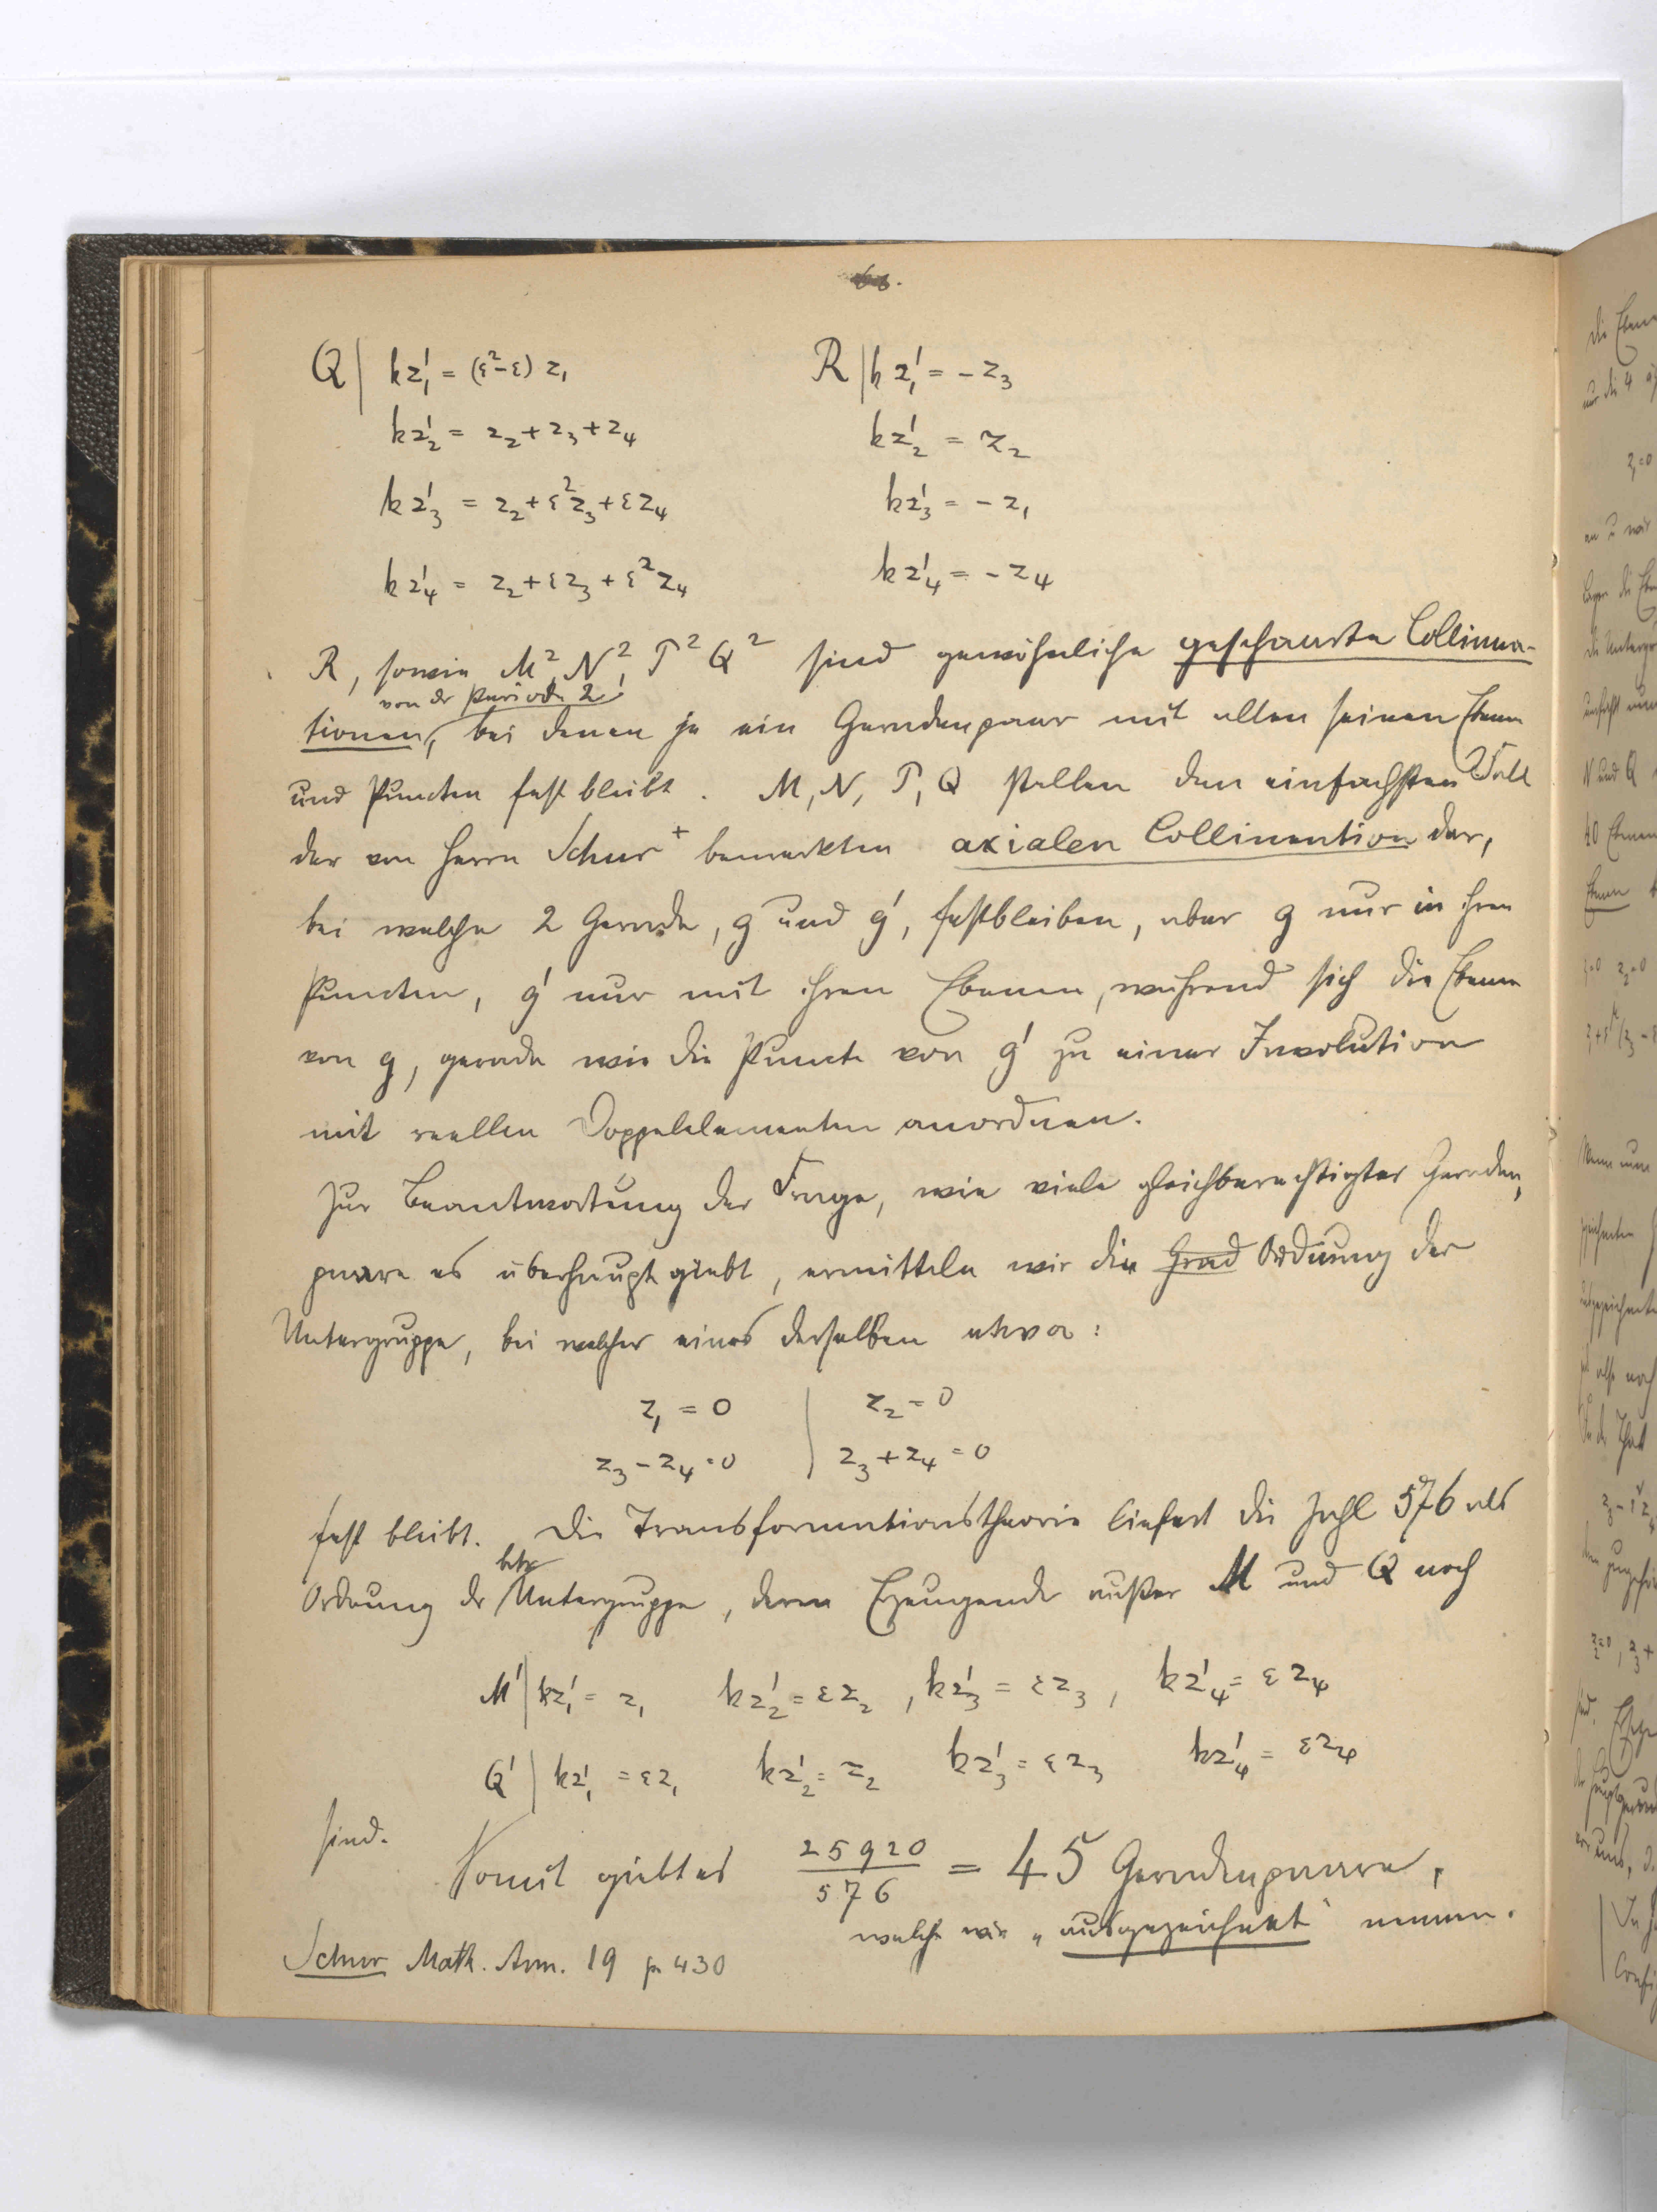 Q | kz₁' = (ε²-ε) z₁   R | kz₁' = -z₃
kz₂' = z₂+z₃+z₄   kz₂' = z₂
kz₃' = z₂+ε²z₃+εz₄   kz₃' = -z₁
kz₄' = z₂+εz₃+ε²z₄   kz₄' = -z₄
R, sowie M², N², T² Q² sind gewöhnliche geschaarte Collinea-
von der Periode 2
tionen, bei denen je ein Geradenpaar mit allen seinen Ebenen
und Puncten fest bleibt. M, N, T, Q stellen den einfachsten Fall
der von Herrn Schur + bemerkten axialen Collineation dar,
bei welcher 2 Gerade, g und g', festbleiben, aber g nur in ihren
Puncten, g' nur mit ihren Ebenen, während sich die Ebenen
von g, gerade wie die Puncte von g' zu einer Involution
mit reellen Doppelelementen anordnen.
Zur Beantwortung der Frage, wie viele gleichberechtigter Geraden,
paare es überhaupt giebt, ermitteln wir die Grad Ordnung der
Untergruppe, bei welcher eines derselben etwa:
z₁ = 0 | z₂ = 0
z₃ - z₄ = 0 | z₃ + z₄ = 0
fest bleibt. Die Transformationstheorie liefert die Zahl 576 als
Ordnung der Untergruppe, deren Erzeugende außer M und Q noch
M' | kz₁' = z₁   kz₂' = εz₂, kz₃' = εz₃, kz₄' = εz₄
Q' | kz₁' = εz₁   kz₂' = z₂   kz₃' = εz₃   kz₄' = εz₄
sind.
Somit giebt es 25920/576 = 45 Geradenpaare,
welche wir "ausgezeichnet" nennen.
Schur Math. Ann. 19 p 430